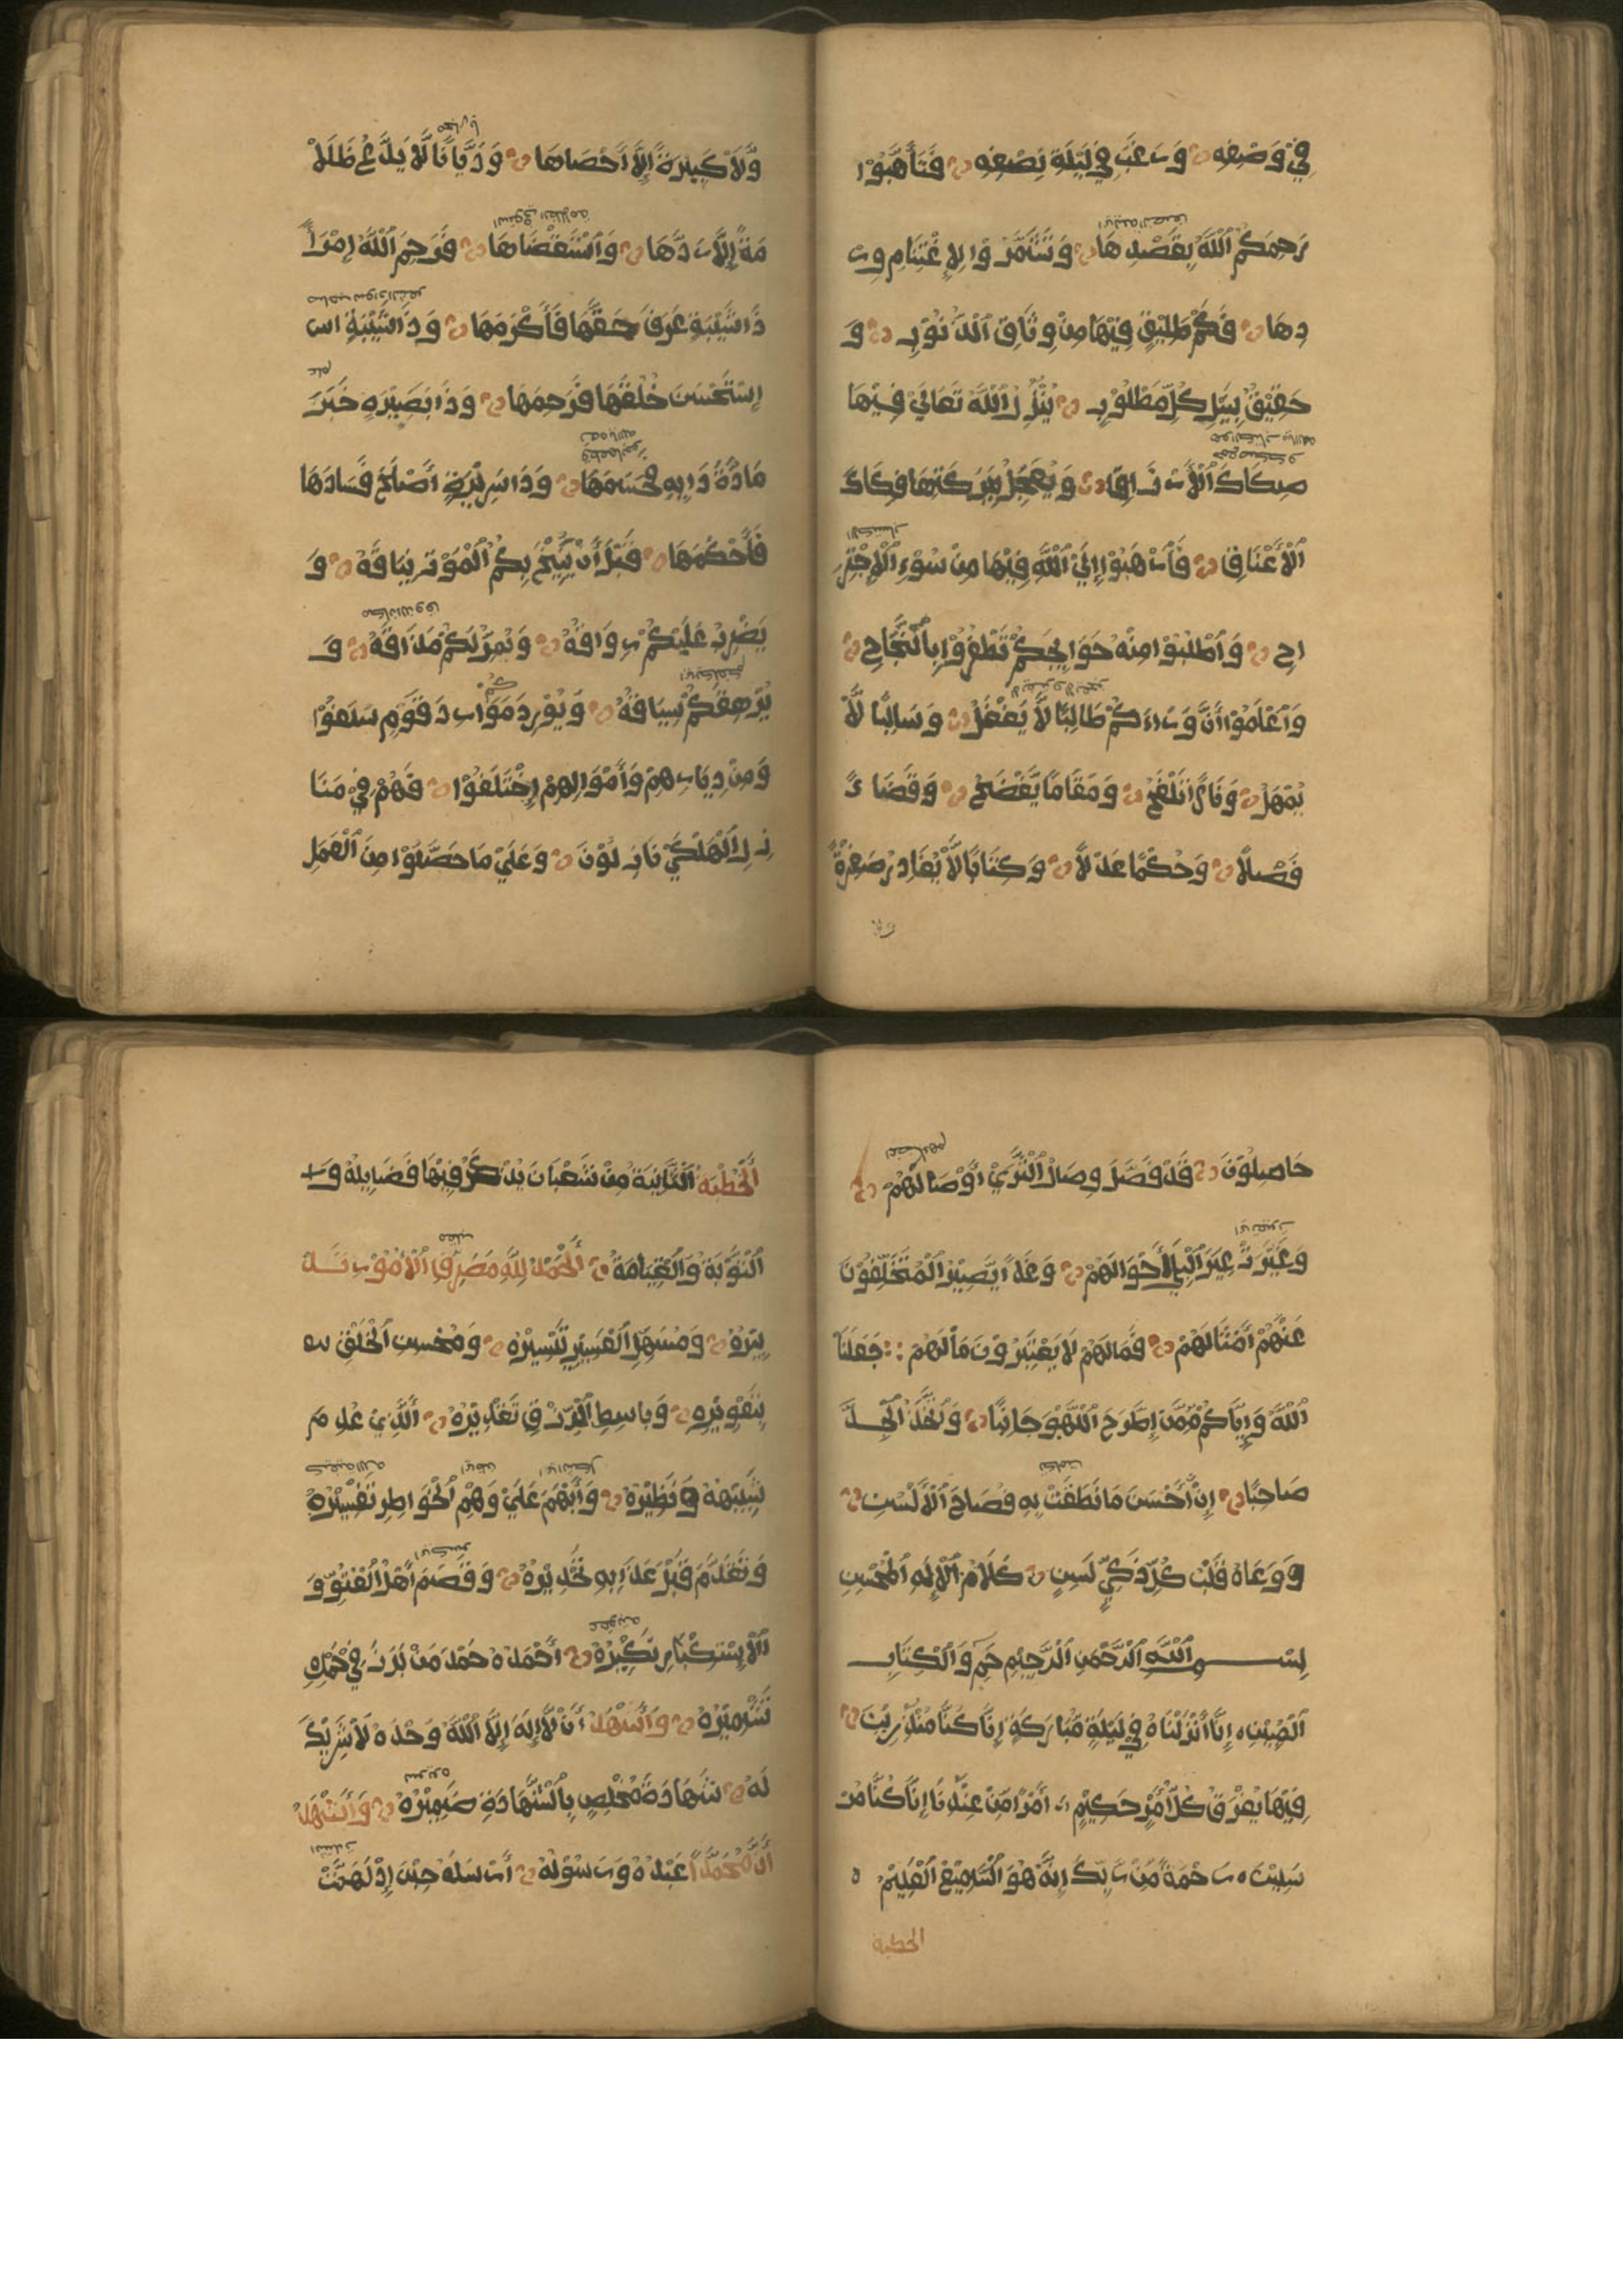 فِيْ وَصْفِهِ وَرَغَّبَ فِي لَيْلَةِ نِصْفِهِ فَتَأَهَّبُوْا
رَحِمَكُمُ ٱللَّهُ بِقَصْدِهَا وَشَمِّرُوْا لِاِغْتِنَامِ وِرْ
دِهَا فَكَمْ طَلِيْقٍ فِيْهَا مِنْ وِثَاقِ ٱلذُّنُوْبِ وَ
حَقِيْقٍ بِنَيْلِ كُلِّ مَطْلُوْبٍ يُنْزِلُ ٱللَّهُ تَعَالَىْ فِيْهَا
صِكَاكَ ٱلْأَرْزَاقِ وَيُعَجِّلُ بِبَرَكَتِهَا فِكَاكَ
ٱلْأَعْنَاقِ فَٱرْهَبُوْا إِلَىْ ٱللَّهِ فِيْهَا مِنْ سُوْءِ ٱلْاِجْتِرَ
احِ وَٱطْلُبُوْا مِنْهُ حَوَايِجَكُمْ تَظْفَرُوْا بِٱلنَّجَاحِ
وَٱعْلَمُوْا أَنَّ وَرَاءَكُمْ طَالِبًا لَّا يَغْفُلُ وَسَالِبًا لَّا
يُمْهِلُ وَنَارًا تَلْفَحُ وَمَقَامًا يَّفْضَحُ وَقَضَاءً
فَصْلًا وَحُكْمًا عَدْلًا وَكِتَابًا لَّا يُغَادِرُ صَغِيْرَةً
وَّلَا كَبِيْرَةً إِلَّا أَحْصَاهَا وَدَيَّانًا لَّا يَدَعُ ظُلَا
مَةً إِلَّا رَدَّهَا وَٱسْتَقْضَاهَا فَرَحِمَ ٱللَّهُ اِمْرَأً
ذَا شَّيْبَةٍ عَرَفَ حَقَّهَا فَأَكْرَمَهَا وَذَا شَّبِيْبَةٍ اس
اِسْتَحْسَنَ خَلْقَهَا فَرَحِمَهَا وَذَا بَصِيْرَةٍ خَبَرَ
مَادَّةَ دَايِهِ فَحَسَمَهَا وَذَا سَرِيْرَةٍ أَصْلَحَ فَسَادَهَا
فَأَحْكَمَهَا قَبْلَ أَنْ يُنِيْخَ بِكُمُ ٱلْمَوْتُ نِيَاقَهُ وَ
يَضْرِبَ عَلَيْكُمْ رِوَاقَهُ وَيُمِرَّ لَكُمْ مَذَاقَهُ وَ
يُرْهِقَكُمْ سِيَاقَهُ وَيُوْرِدَ مَوَارِدَ قَوْمٍ سَلَفُوْا
وَمِنْ دِيَارِهِمْ وَأَمْوَالِهِمْ اِخْتَلَفُوْا فَهُمْ فِيْ مَنَا
زِلِ ٱلْهَلْكَىْ نَازِلُوْنَ وَعَلَىْ مَا حَصَّلُوْا مِنَ ٱلْعَمَلِ
حَاصِلُوْنَ قَدْ فَصَّلَ وِصَالُ ٱلثَّرَىْ أَوْصَالَهُمْ
وَغَيَّرَتْ غِيَرُ ٱلْبِلَىْ أَحْوَالَهُمْ وَغَدًا يَّصِيْرُ ٱلْمُتَخَلِّفُوْنَ
عَنْهُمْ أَمْثَالَهُمْ فَمَالَهُمْ لَا يَعْتَبِرُوْنَ مَآلَهُمْ جَعَلَنَا
ٱللَّهُ وَإِيَّاكُمْ مِمَّنْ اِطَّرَحَ ٱللَّهْوَ جَانِبًا وَٱتَّخَذَ ٱلْجِدَّ
صَاحِبًا إِنَّ أَحْسَنَ مَا نَطَقَتْ بِهِ فِصَاحُ ٱلْأَلْسُنِ
وَوَعَاهُ قَلْبُ كُلِّ ذَكِيٍّ لَسِنٍ كَلَامُ ٱلْإِلَهِ ٱلْمُحْسِنِ
بِسْمِ ٱللَّهِ ٱلرَّحْمَنِ ٱلرَّحِيْمِ حم وَٱلْكِتَابِ
ٱلْمُبِيْنِ إِنَّا أَنْزَلْنَاهُ فِيْ لَيْلَةٍ مُّبَارَكَةٍ إِنَّا كُنَّا مُنْذِرِيْنَ
فِيْهَا يُفْرَقُ كُلُّ أَمْرٍ حَكِيْمٍ أَمْرًا مِّنْ عِنْدِنَا إِنَّا كُنَّا مُرْ
سِلِيْنَ رَحْمَةً مِّنْ رَّبِّكَ إِنَّهُ هُوَ ٱلسَّمِيْعُ ٱلْعَلِيْمُ
الخطبة
أَلْخُطْبَةُ ٱلثَّانِيَةُ مِنْ شَعْبَانَ يُذْكَرُ فِيْهَا فَضَايِلُهُ وَ
ٱلتَّوْبَةُ وَٱلْقِيَامَةُ أَلْحَمْدُ لِلَّهِ مُصَرِّفِ ٱلْأُمُوْرِ بِتَدْ
بِيْرِهْ وَمُسَهِّلِ ٱلْعَسِيْرِ بِتَيْسِيْرِهْ وَمُحْسِنِ ٱلْخَلْقِ
بِتَقْوِيْرِهِ وَبَاسِطِ ٱلرِّزْقِ بِتَقْدِيْرِهْ أَلَّذِيْ عُدِمَ
شَبِيْهُهُ وَنَظِيْرُهْ وَأَبْهَمَ عَلَىْ وَهْمِ ٱلْخَوَاطِرِ تَفْسِيْرُهْ
وَتَقَدَّمَ قَبْلَ عَذَابِهِ تَحْذِيْرُهْ وَقَصَمَ أَهْلَ ٱلْعُتُوِّ وَ
ٱلْاِسْتِكْبَارِ نَكِيْرُهْ أَحْمَدُهُ حَمْدَ مَنْ بَرَزَ فِيْ حَمْدِهِ
تَشْمِيْرُهْ وَأَشْهَدُ أَنْ لَّا إِلَهَ إِلَّا ٱللَّهُ وَحْدَهُ لَا شَرِيْكَ
لَهُ شَهَادَةَ مُخْلِصٍ بِٱلشَّهَادَةِ ضَمِيْرُهْ وَأَشْهَدُ
أَنَّ مُحَمَّدًا عَبْدُهُ وَرَسُوْلُهُ أَرْسَلَهُ حِيْنَ اِدْلَهَمَّتْ